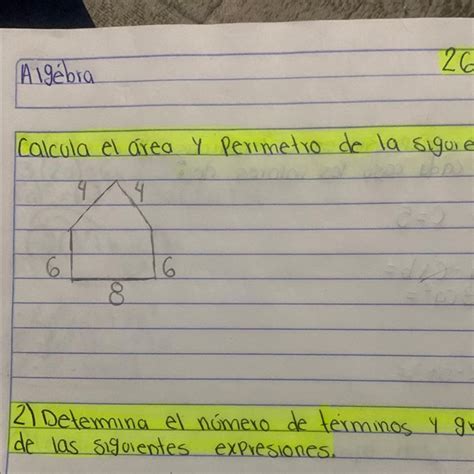 Algebra
26
Calcula el área y Perimetro de la siguie
4 4
6 6
8
2) Determina el número de términos y gr
de las siguientes expresiones.